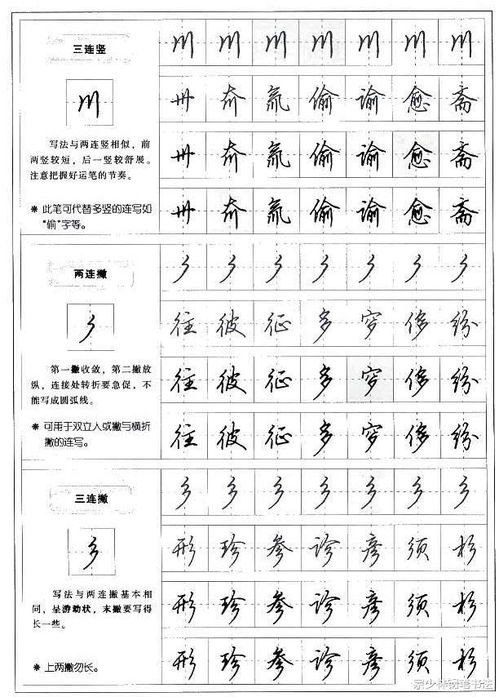 三连竖
川
写法与两连竖相似，前
两竖较短，后一竖较舒展。
注意把握好运笔的节奏。
＊ 此笔可代替多竖的连写如
“偷”字等。
川 川 川 川 川 川 川
偷 谕 愈 斋
偷 谕 愈 斋
偷 谕 愈 斋
两连撇
第一撇收敛，第二撇放
纵，连接处转折要急促，不
能写成圆弧线。
＊ 可用于双立人或撇与横折
撇的连写。
往 彼 征 多 侈 纷
往 彼 征 多 侈 纷
往 彼 征 多 侈 纷
三连撇
写法与两连撇基本相
同，呈游动状，末撇要写得
长一些。
＊ 上两撇勿长。
形 珍 参 诊 彦 须 杉
形 珍 参 诊 彦 须 杉
形 珍 参 诊 彦 须 杉